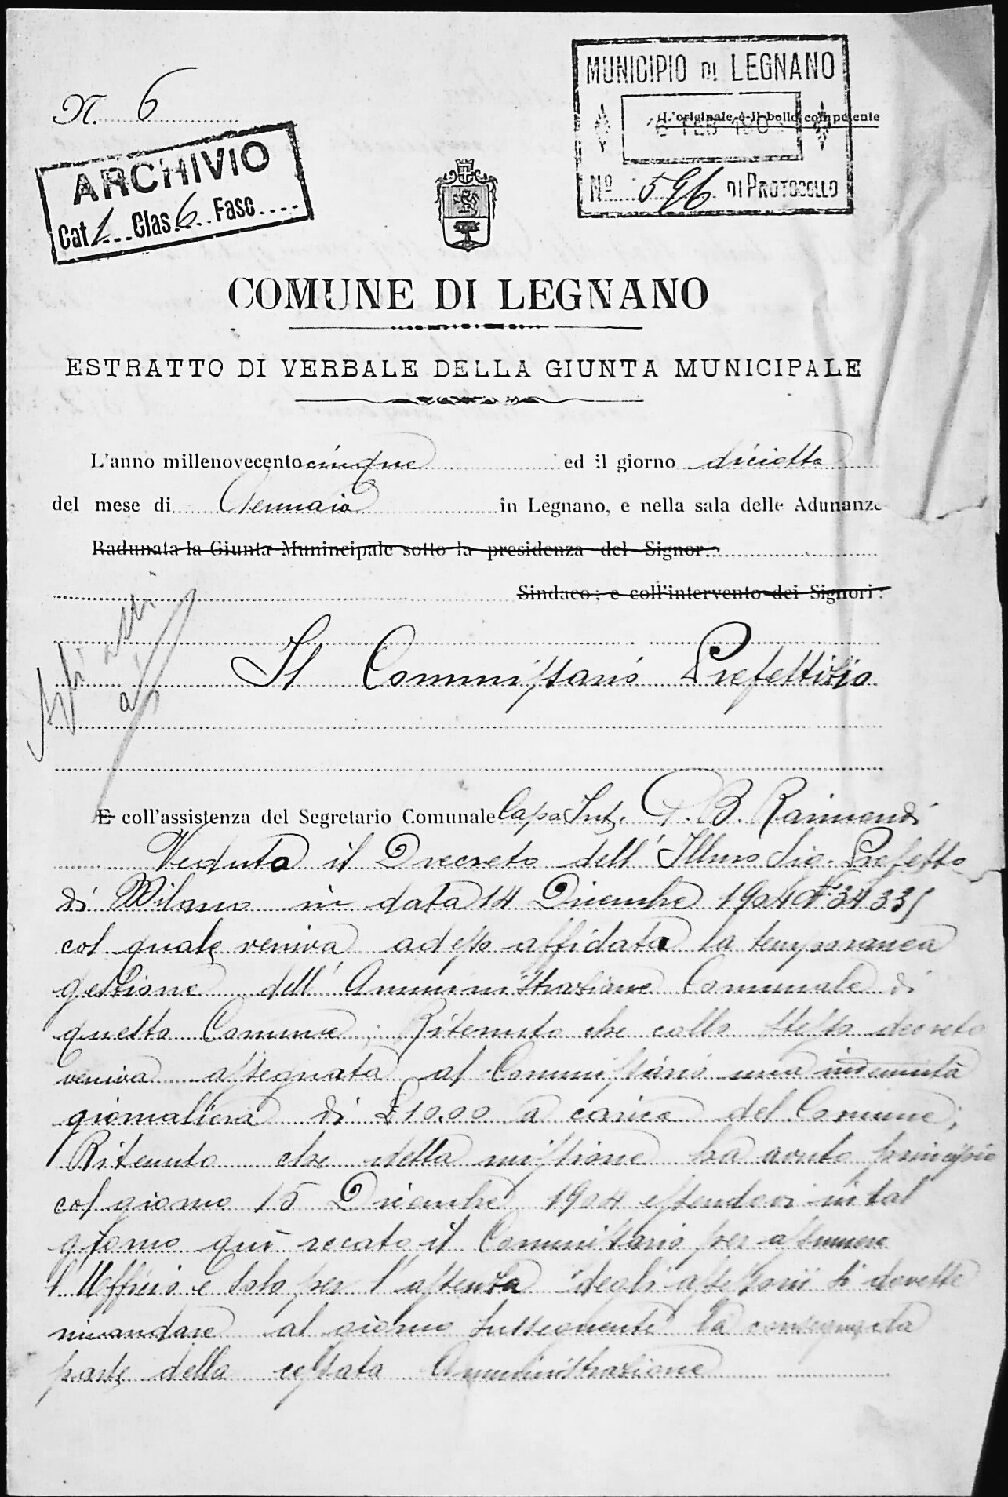 N. 6
MUNICIPIO DI LEGNANO
L'originale è in bollo competente
FEB 190
Nº 596 DI PROTOCOLLO
ARCHIVIO
Cat. 1 Clas. 6 Fasc.
COMUNE DI LEGNANO
ESTRATTO DI VERBALE DELLA GIUNTA MUNICIPALE
L'anno millenovecento cinque ed il giorno diciotto
del mese di Gennaio in Legnano, e nella sala delle Adunanze
Radunata la Giunta Munincipale sotto la presidenza del Signor:
Sindaco; e coll'intervento dei Signori:
Il Commissario Prefettizio
E coll'assistenza del Segretario Comunale Capo Sut. G. B. Raimondi
Veduto il Decreto dell'Illmo Sig. Prefetto
di Milano in data 14 Dicembre 1904 Nº 34335
col quale veniva ad esso affidata la temporanea
gestione dell'Amministrazione Comunale di
questo Comune; Ritenuto che collo stesso decreto
veniva assegnata al Commissario una indennità
giornaliera di £ 10.00 a carico del Comune;
Ritenuto che della missione ha avuto principio
col giorno 15 Dicembre 1904 essendosi in tal
giorno quì recato il Commissario per assumere
l'Ufficio e solo per l'assenza degli assessori si dovette
rimandare al giorno susseguente la consegna
parte della cessata Amministrazione